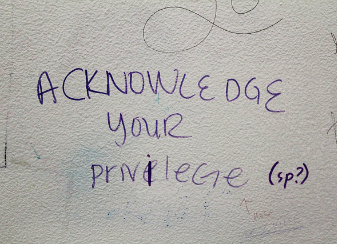 ACKNOWLEDGE
YOUR
PRIVilEGE (sp?)